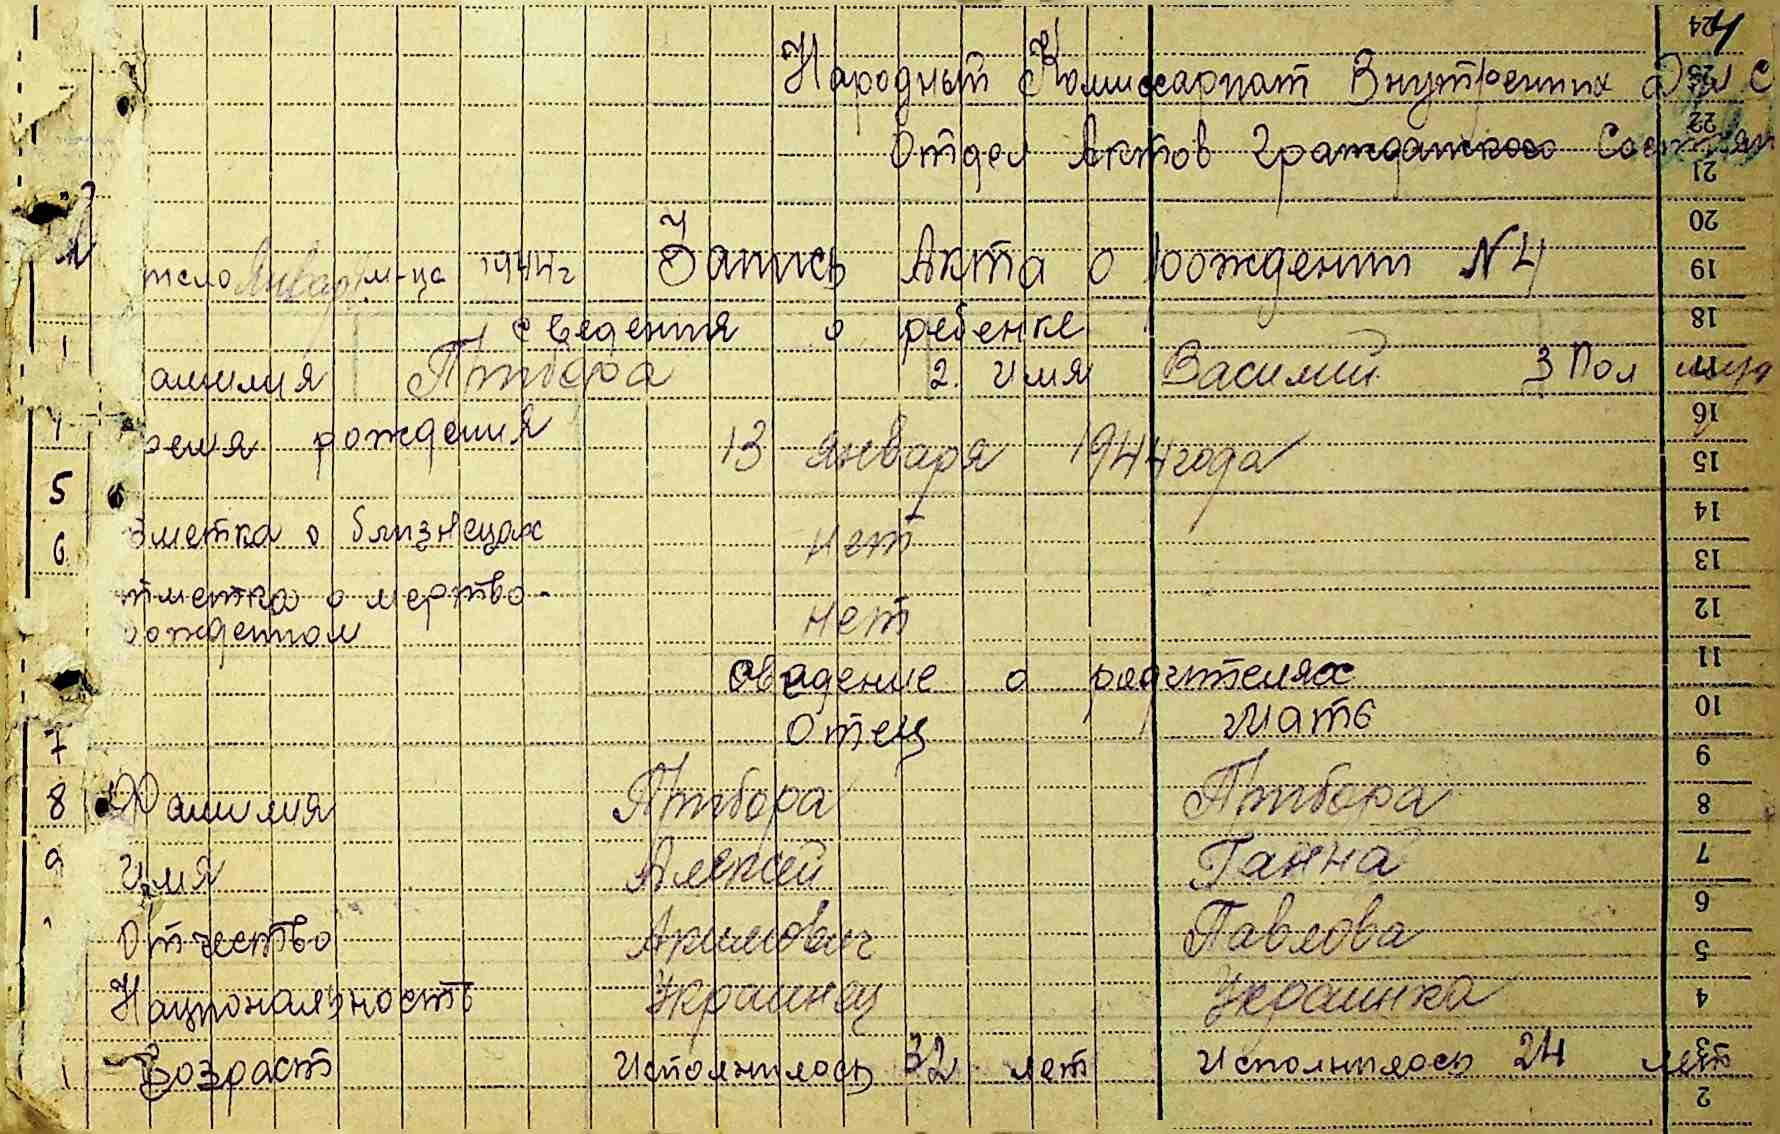 24 4
Народный Комиссариат Внутренних Дел С
23
22
Отдел Актов Гражданского Состоян
21
20
число Января м-ца 1944 г Запись Акта о рождении N 4
19
Сведения о ребенке
18
1 амилия Птбора 2. Имя Василий 3 Пол муж
16
ремя рождения 13 января 1944 года
15
5
14
6 тметка о близнецах нет
13
тметка о мертво-
12
рожденном нет
11
Сведение о родителях
10
7 Отец Мать
9
8 Фамилия Птбора Птбора
8
9 Имя Алексей Ганна
7
6
Отчество Акимович Павлова
5
Национальность Украинец Украинка
4
3
Возраст Исполнилось 32 лет Исполнилось 24 лет
2